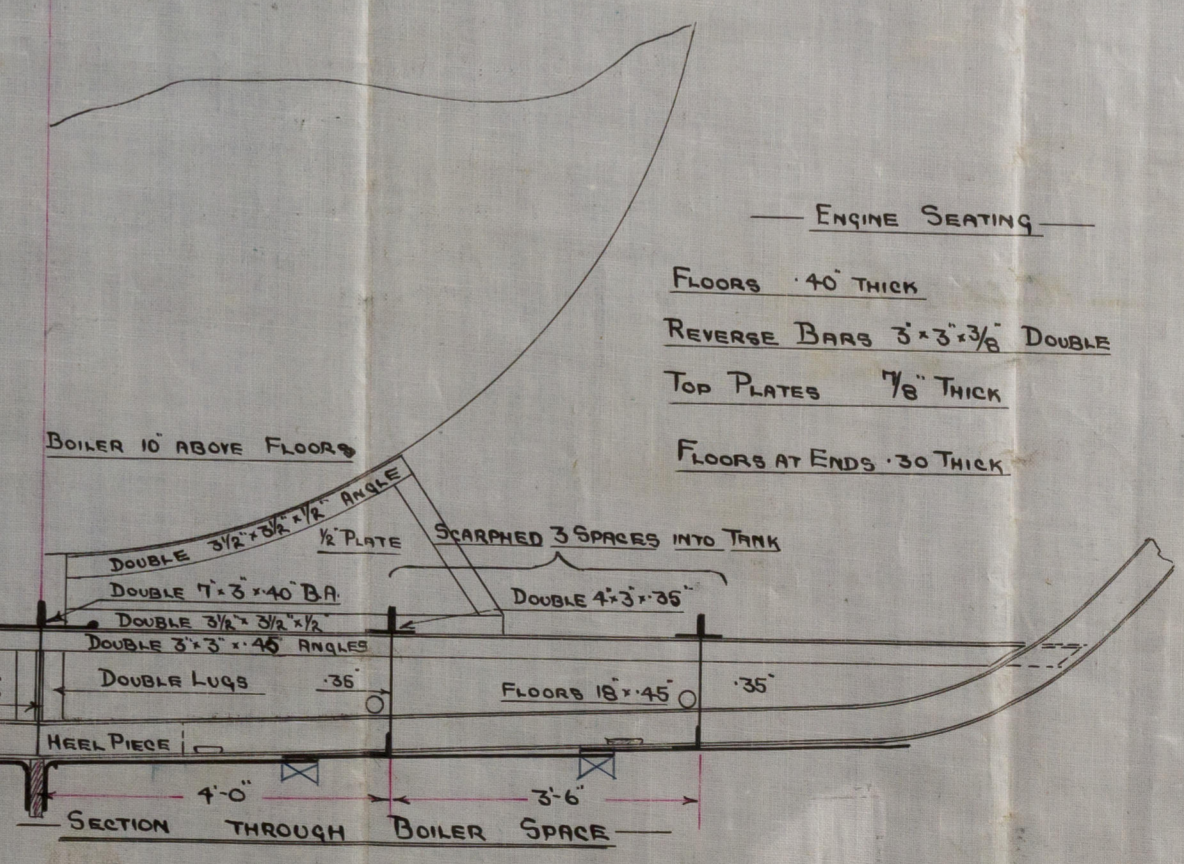 ENGINE SEATING
FLOORS .40" THICK
REVERSE BARS 3" x 3" x 3/8" DOUBLE
TOP PLATES 7/8" THICK
FLOORS AT ENDS .30 THICK
BOILER 10" ABOVE FLOORS
DOUBLE 3 1/2" x 3 1/2" x 1/2" ANGLE
1/2" PLATE
SCARPHED 3 SPACES INTO TANK
DOUBLE 7" x 3" x .40" B.A.
DOUBLE 4" x 3" x .35"
DOUBLE 3 1/2" x 3 1/2" x 1/2"
DOUBLE 3" x 3" x .45" ANGLES
DOUBLE LUGS
.35"
FLOORS 18" x .45"
.35"
HEEL PIECE
4'-0"
3'-6"
SECTION THROUGH BOILER SPACE